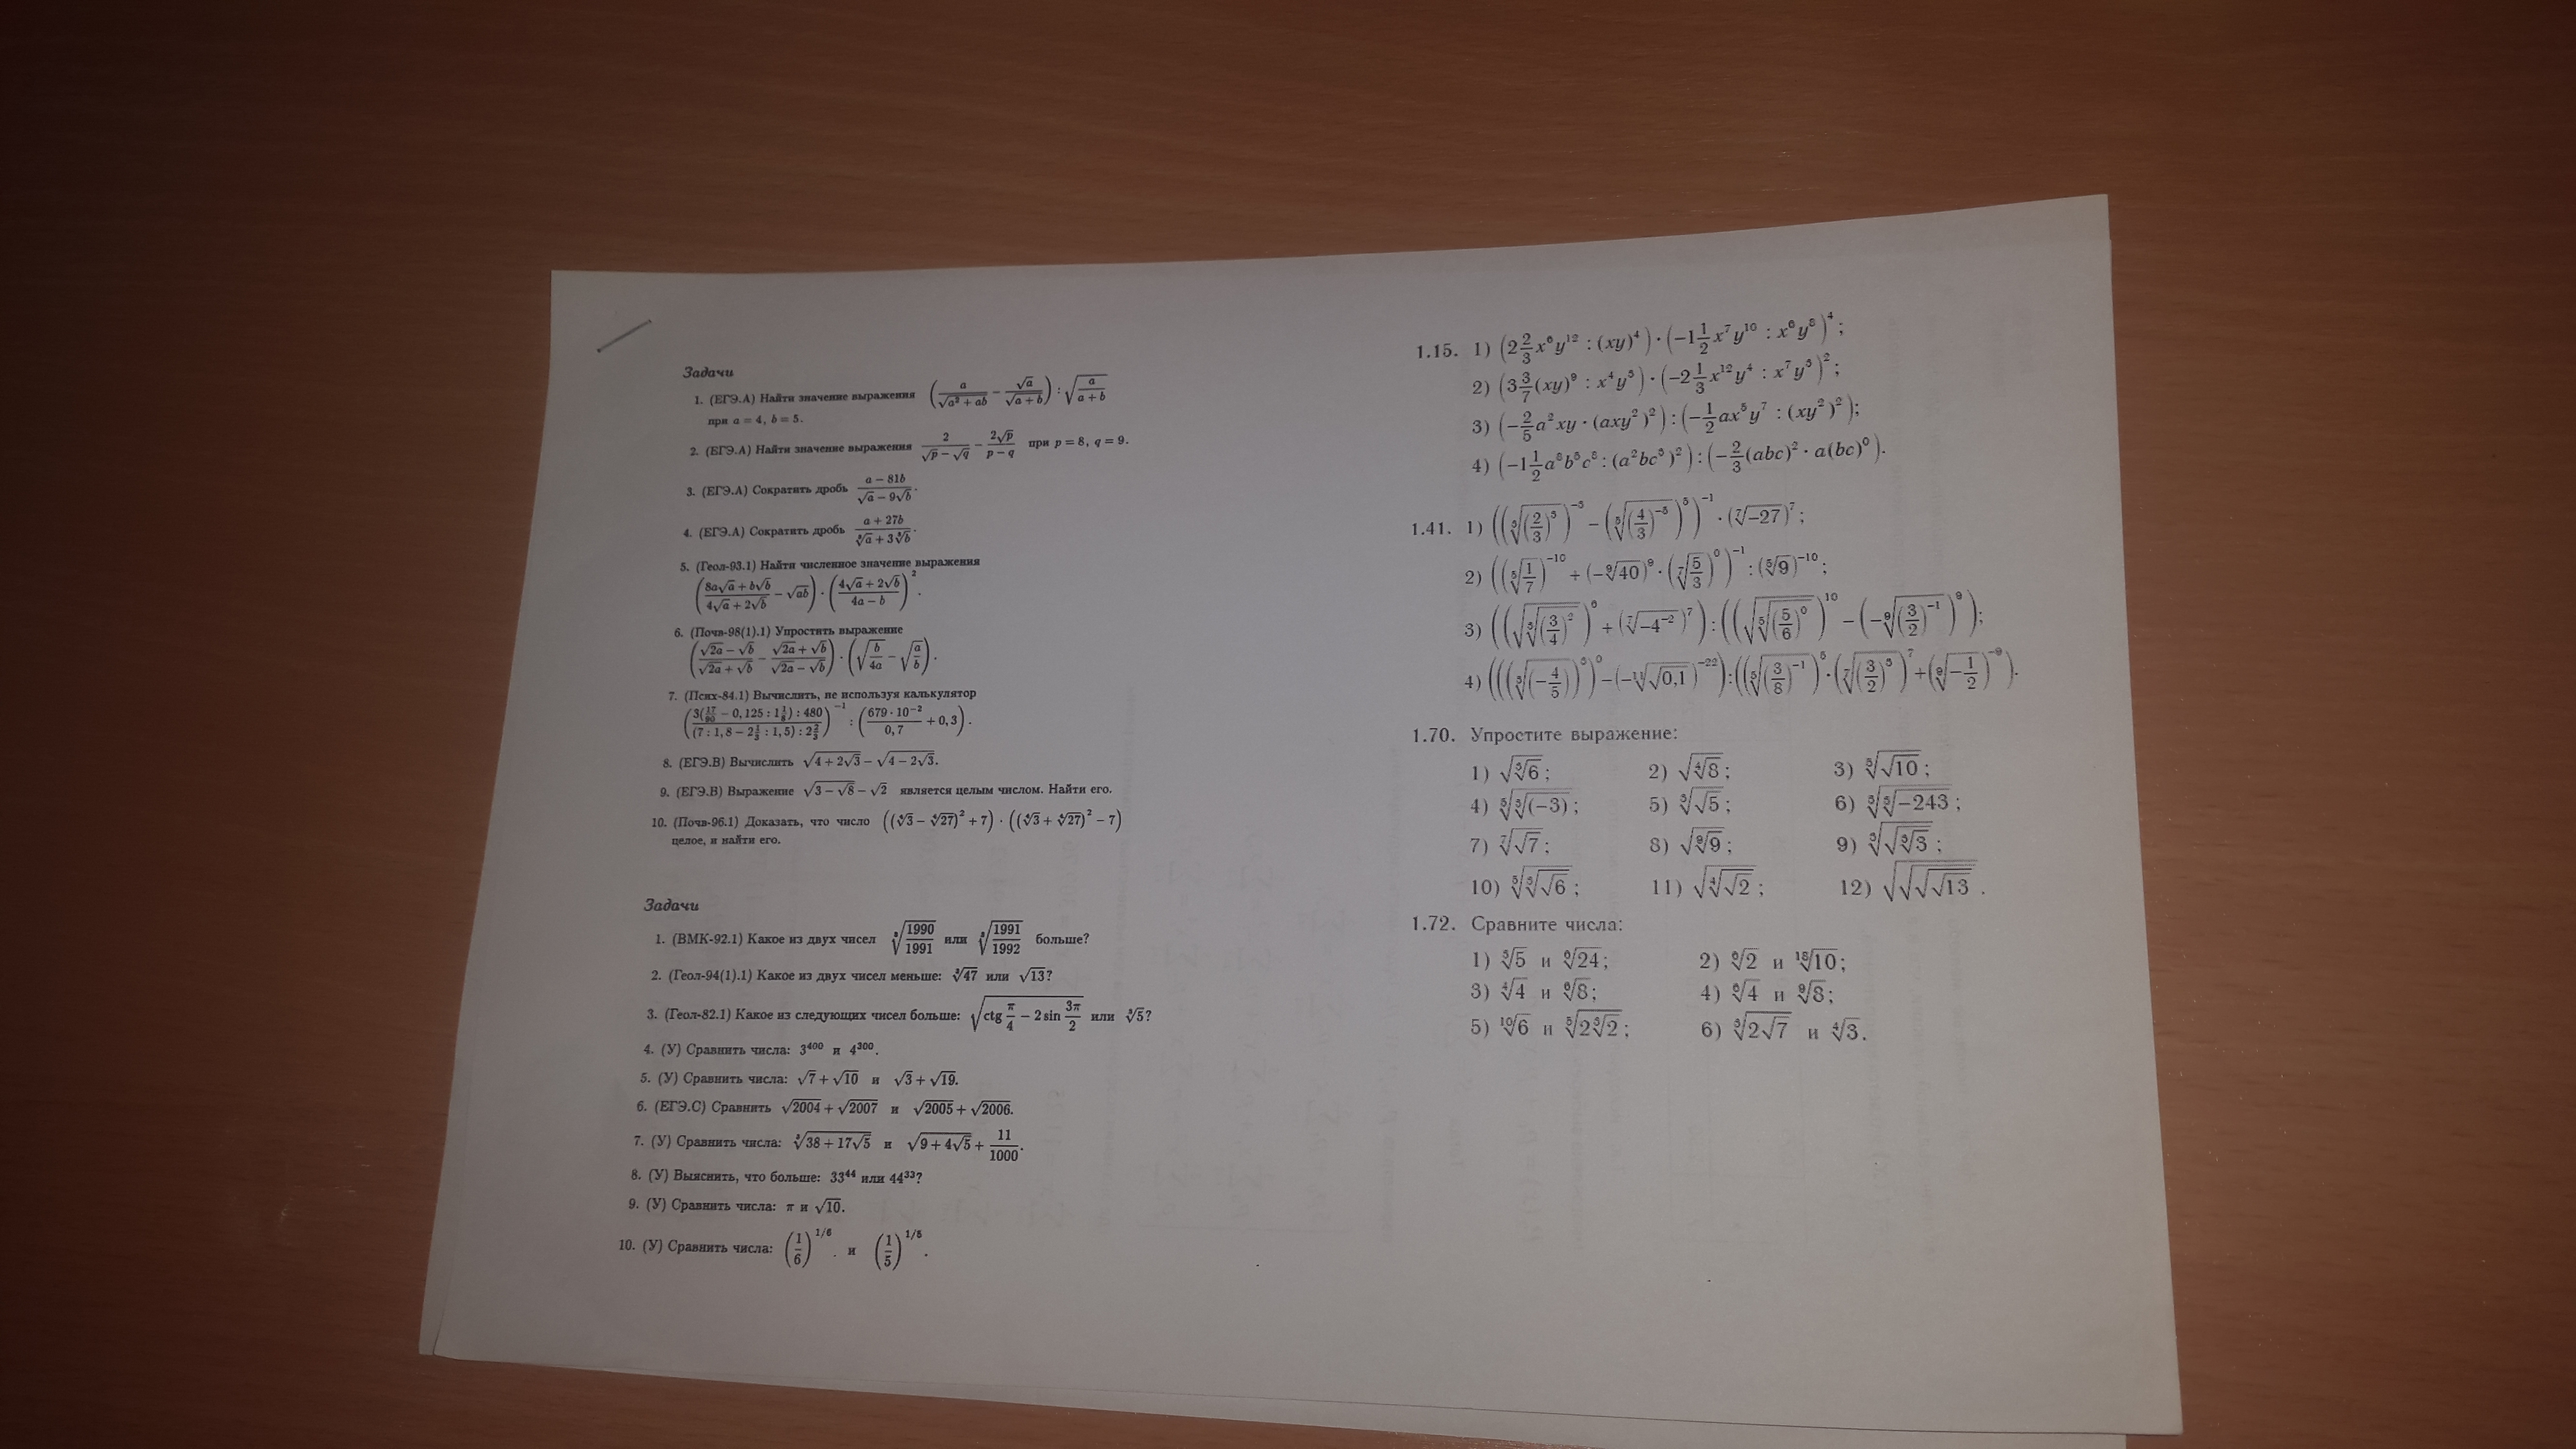 Задачи
1. (ЕГЭ.А) Найти значение выражения (a/√(a² + ab) − √a/√(a + b)) : √(a/(a + b))
при a = 4, b = 5.
2. (ЕГЭ.А) Найти значение выражения 2/(√p − √q) − 2√p/(p − q) при p = 8, q = 9.
3. (ЕГЭ.А) Сократить дробь (a − 81b)/(√a − 9√b).
4. (ЕГЭ.А) Сократить дробь (a + 27b)/(∛a + 3∛b).
5. (Геол-93.1) Найти численное значение выражения
((8a√a + b√b)/(4√a + 2√b) − √ab) · ((4√a + 2√b)/(4a − b))².
6. (Почв-98(1).1) Упростить выражение
((√2a − √b)/(√2a + √b) − (√2a + √b)/(√2a − √b)) · (√(b/4a) − √(a/b)).
7. (Псих-84.1) Вычислить, не используя калькулятор
(3(17/90 − 0,125 : 1 1/8) : 480/(7 : 1,8 − 2 1/3 : 1,5) : 2 2/3)⁻¹ : (679 · 10⁻²/0,7 + 0,3).
8. (ЕГЭ.В) Вычислить √(4 + 2√3) − √(4 − 2√3).
9. (ЕГЭ.В) Выражение √(3 − √8) − √2 является целым числом. Найти его.
10. (Почв-96.1) Доказать, что число ((∜3 − ∜27)² + 7) · ((∜3 + ∜27)² − 7)
целое, и найти его.
Задачи
1. (ВМК-92.1) Какое из двух чисел ∛(1990/1991) или ∛(1991/1992) больше?
2. (Геол-94(1).1) Какое из двух чисел меньше: ∛47 или √13?
3. (Геол-82.1) Какое из следующих чисел больше: √(ctg π/4 − 2 sin 3π/2) или ∛5?
4. (У) Сравнить числа: 3⁴⁰⁰ и 4³⁰⁰.
5. (У) Сравнить числа: √7 + √10 и √3 + √19.
6. (ЕГЭ.С) Сравнить √2004 + √2007 и √2005 + √2006.
7. (У) Сравнить числа: ∛(38 + 17√5) и √(9 + 4√5) + 11/1000.
8. (У) Выяснить, что больше: 33⁴⁴ или 44³³?
9. (У) Сравнить числа: π и √10.
10. (У) Сравнить числа: (1/6)^1/6 и (1/5)^1/5.
1.15. 1) (2 2/3 x⁶y¹² : (xy)⁴) · (−1 1/2 x⁷y¹⁰ : x⁶y⁸)⁴;
2) (3 3/7 (xy)⁹ : x⁴y⁵) · (−2 1/3 x¹²y⁴ : x⁷y³)²;
3) (−2/5 a²xy · (axy²)²) : (−1/2 ax⁵y⁷ : (xy²)²);
4) (−1 1/2 a⁸b⁵c⁸ : (a²bc³)²) : (−2/3 (abc)² · a(bc)⁰).
1.41. 1) ((⁵√(2/3)³)⁻⁵ − (⁵√(4/3)⁻⁵)⁵)⁻¹ · (⁷√−27)⁷;
2) ((⁵√1/7)⁻¹⁰ + (−⁹√40)⁹ · (⁷√5/3)⁰)⁻¹ : (⁵√9)⁻¹⁰;
3) ((√∛(3/4)²)⁶ + (⁷√−4⁻²)⁷) : ((√⁵√(5/6)⁰)¹⁰ − (−⁹√(3/2)⁻¹)⁹);
4) (((∛(−4/5))³)⁰ − (−¹¹√√0,1)⁻²²) : ((⁵√(3/8)⁻¹)⁵ · (⁷√(3/2)³)⁷ + (⁹√−1/2)⁻⁹).
1.70. Упростите выражение:
1) √∛6; 2) √∜8; 3) ⁵√√10;
4) ⁵√∛(−3); 5) ∛√5; 6) ∛⁵√−243;
7) ⁷√√7; 8) √⁹√9; 9) ∛√∛3;
10) ⁵√∛√6; 11) √∜√2; 12) √√√√13.
1.72. Сравните числа:
1) ∛5 и ⁶√24; 2) ⁶√2 и ¹⁸√10;
3) ∜4 и ⁶√8; 4) ⁶√4 и ⁹√8;
5) ¹⁰√6 и ⁵√2∛2; 6) ∛2√7 и ∜3.